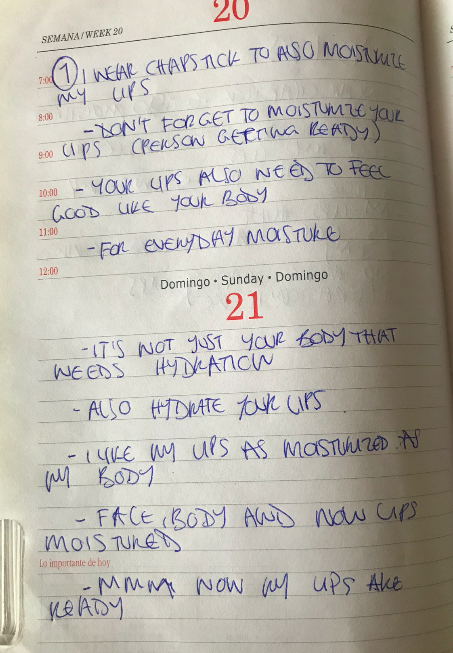 20
SEMANA/WEEK 20
7:00 ① I WEAR CHAPSTICK TO ALSO MOISTURIZE
MY LIPS
8:00
- DON'T FORGET TO MOISTURIZE YOUR
9:00 LIPS (PERSON GETTING READY)
10:00 - YOUR LIPS ALSO NEED TO FEEL
GOOD LIKE YOUR BODY
11:00
- FOR EVERYDAY MOISTURE
12:00
Domingo • Sunday • Domingo
21
- IT'S NOT JUST YOUR BODY THAT
NEEDS HYDRATION
- ALSO HYDRATE YOUR LIPS
- I LIKE MY LIPS AS MOISTURIZED AS
MY BODY
- FACE, BODY AND NOW LIPS
MOISTURED
Lo importante de hoy
- MMMM NOW MY LIPS ARE
READY